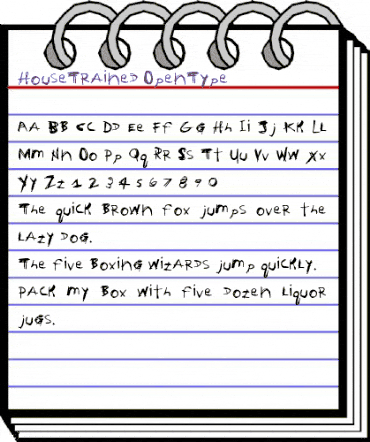 HouseTrained OpenType
AA BB CC DD Ee Ff GG Hh Ii Jj KK LL
Mm Nn Oo Pp Qq RR Ss Tt Uu Vv WW Xx
Yy Zz 1 2 3 4 5 6 7 8 9 0
The quick brown fox jumps over the
lazy dog.
The five boxing wizards jump quickly.
Pack my box with five dozen liquor
jugs.